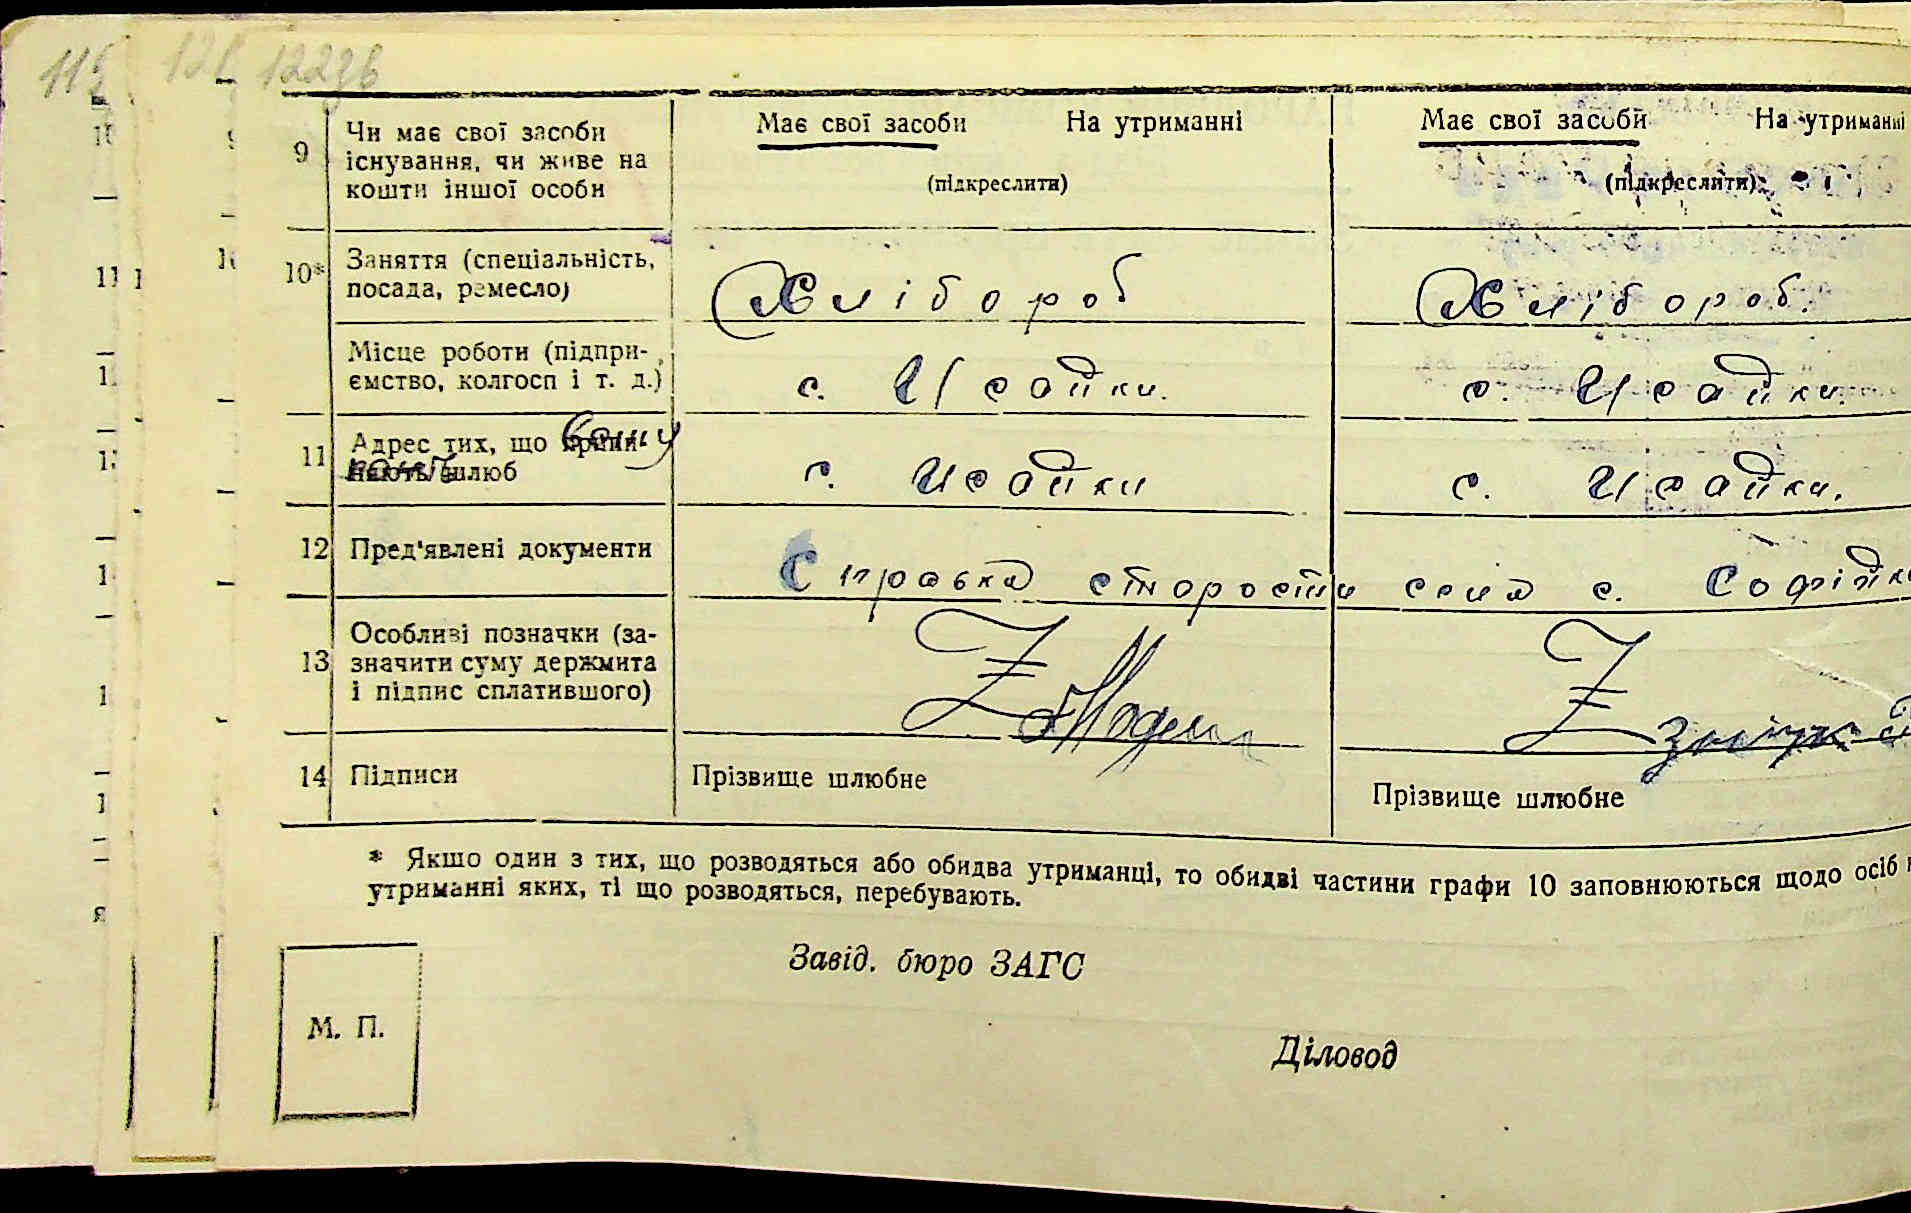 122зв
9 Чи має свої засоби існування, чи живе на кошти іншої особи
Має свої засоби На утриманні
(підкреслити)
Має свої засоби На утриманні
(підкреслити)
10* Заняття (спеціальність, посада, ремесло)
Хлібороб
Хлібороб.
Місце роботи (підпри-
ємство, колгосп і т. д.)
с. Исайки.
с. Исайки.
11 Адрес тих, що
шлюб
с. Исайки
с. Исайки.
12 Пред'явлені документи
Справка старости села с. Софійк
13 Особливі позначки (за-
значити суму держмита
і підпис сплатившого)
14 Підписи
Прізвище шлюбне
Прізвище шлюбне
* Якшо один з тих, що розводяться або обидва утриманці, то обидві частини графи 10 заповнюються щодо осіб
утриманні яких, ті що розводяться, перебувають.
Завід. бюро ЗАГС
М. П.
Діловод